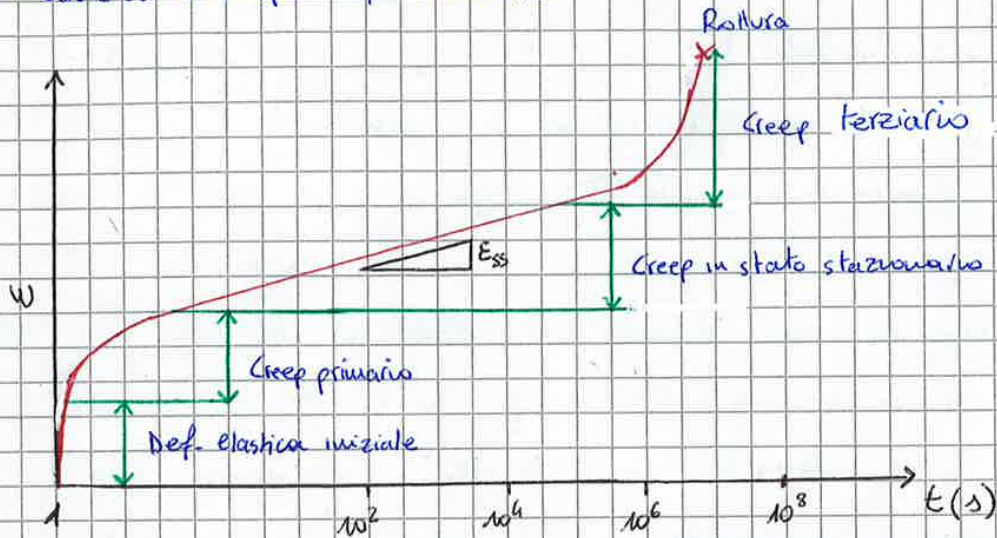 Rottura
Creep terziario
Creep in stato stazionario
ε̇ss
ε
Creep primario
Def. elastica iniziale
1
10²
10⁴
10⁶
10⁸
t(s)